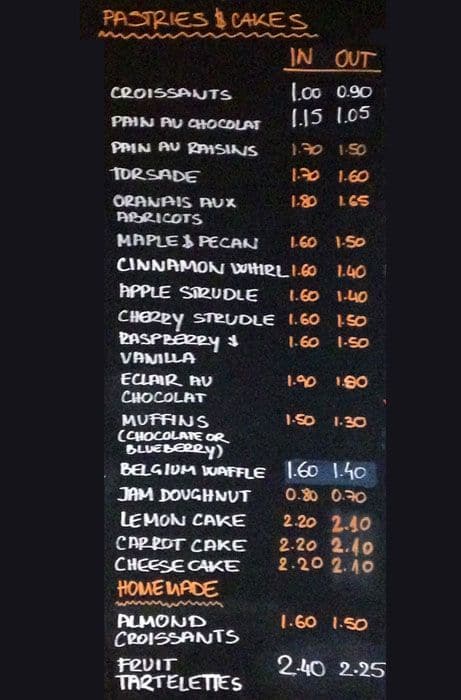 PASTRIES & CAKES
IN OUT
CROISSANTS 1.00 0.90
PAIN AU CHOCOLAT 1.15 1.05
PAIN AU RAISINS 1.70 1.50
TORSADE 1.70 1.60
ORANAIS AUX 1.80 1.65
ABRICOTS
MAPLE & PECAN 1.60 1.50
CINNAMON WHIRL 1.60 1.40
APPLE STRUDLE 1.60 1.40
CHERRY STRUDLE 1.60 1.50
RASPBERRY & 1.60 1.50
VANILLA
ECLAIR AU 1.90 1.80
CHOCOLAT
MUFFINS 1.50 1.30
(CHOCOLATE OR
BLUEBERRY)
BELGIUM WAFFLE 1.60 1.40
JAM DOUGHNUT 0.80 0.70
LEMON CAKE 2.20 2.10
CARROT CAKE 2.20 2.10
CHEESE CAKE 2.20 2.10
HOMEMADE
ALMOND 1.60 1.50
CROISSANTS
FRUIT 2.40 2.25
TARTELETTES